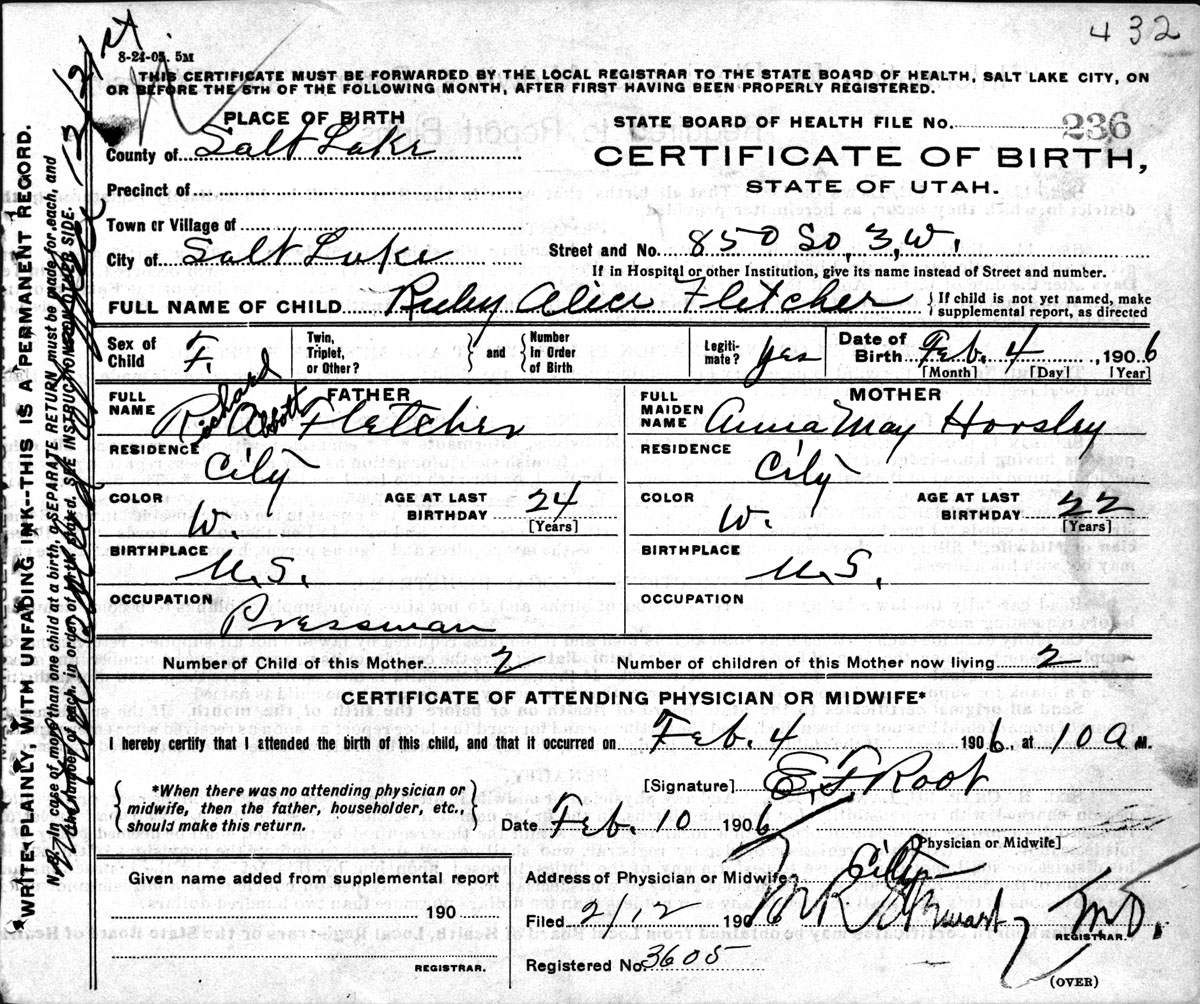 432
8-24-05. 5M
THIS CERTIFICATE MUST BE FORWARDED BY THE LOCAL REGISTRAR TO THE STATE BOARD OF HEALTH, SALT LAKE CITY, ON
OR BEFORE THE 5TH OF THE FOLLOWING MONTH, AFTER FIRST HAVING BEEN PROPERLY REGISTERED.
PLACE OF BIRTH
County of Salt Lake
Precinct of
Town or Village of
City of Salt Lake
STATE BOARD OF HEALTH FILE No. 236
CERTIFICATE OF BIRTH,
STATE OF UTAH.
Street and No. 850 So, 3, W.
If in Hospital or other Institution, give its name instead of Street and number.
FULL NAME OF CHILD Ruby Alice Fletcher { If child is not yet named, make
supplemental report, as directed
Sex of Child F. Twin, Triplet, or Other? } and { Number in Order of Birth
Legiti-mate? yes Date of Birth Feb. 4 1906
[Month] [Day] [Year]
FATHER
FULL NAME Richard Abbott Fletcher
RESIDENCE City
COLOR W. AGE AT LAST BIRTHDAY 24 [Years]
BIRTHPLACE U.S.
OCCUPATION Pressman
MOTHER
FULL MAIDEN NAME Anna May Horsley
RESIDENCE City
COLOR W. AGE AT LAST BIRTHDAY 22 [Years]
BIRTHPLACE U.S.
OCCUPATION
Number of Child of this Mother 2 Number of children of this Mother now living 2
CERTIFICATE OF ATTENDING PHYSICIAN OR MIDWIFE*
I hereby certify that I attended the birth of this child, and that it occurred on Feb. 4 1906, at 10 a M.
{ *When there was no attending physician or
midwife, then the father, householder, etc.,
should make this return. }
[Signature] E F Root
Date Feb. 10 1906
[Physician or Midwife]
Given name added from supplemental report
190
REGISTRAR.
Address of Physician or Midwife City
Filed 2/12 1906 Stewart, M.D.
REGISTRAR.
Registered No. 3605
(OVER)
WRITE PLAINLY, WITH UNFADING INK--THIS IS A PERMANENT RECORD.
N. B.-In case of more than one child at a birth, a SEPARATE RETURN must be made for each, and
the number of each, in order of birth, stated. SEE INSTRUCTIONS ON OTHER SIDE.